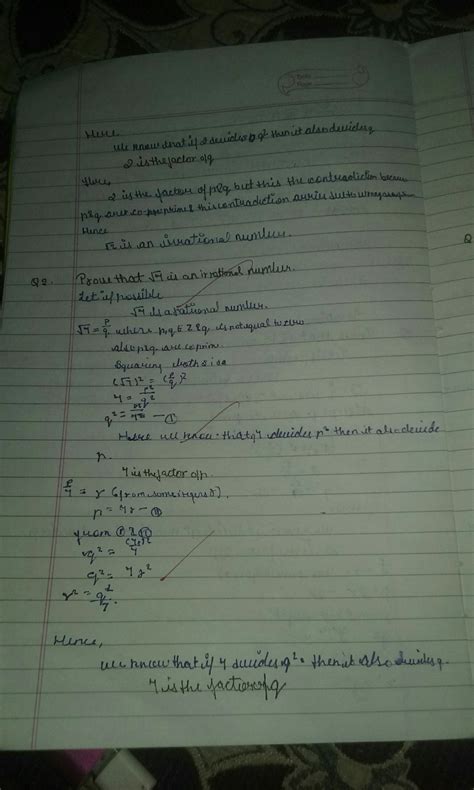 Here,
we know that if 2 devides q² then it also devides q
2 is the factor of q
Here,
2 is the factor of p & q but this the contradiction because
p & q are co-prime & this contradiction arries due to wrong
Hence
√2 is an irrational number.
Q2. Prove that √7 is an irrational number.
Let if possible
√7 is a rational number.
√7 = p/q where p, q ∈ Z & q is not equal to zero
also p & q are coprime.
Squaring both side
(√7)² = (p/q)²
7 = p²/q²
q² = p²/7 — ①
Hence we know that if 7 devides p² then it also devide
p.
7 is the factor of p.
p/7 = r (from some integers r),
p = 7r — ②
from ① & ②
q² = (7r)²/7
q² = 7r²
r² = q²/7
Hence,
we know that if 7 devides q² then it also devides q
7 is the factor of q